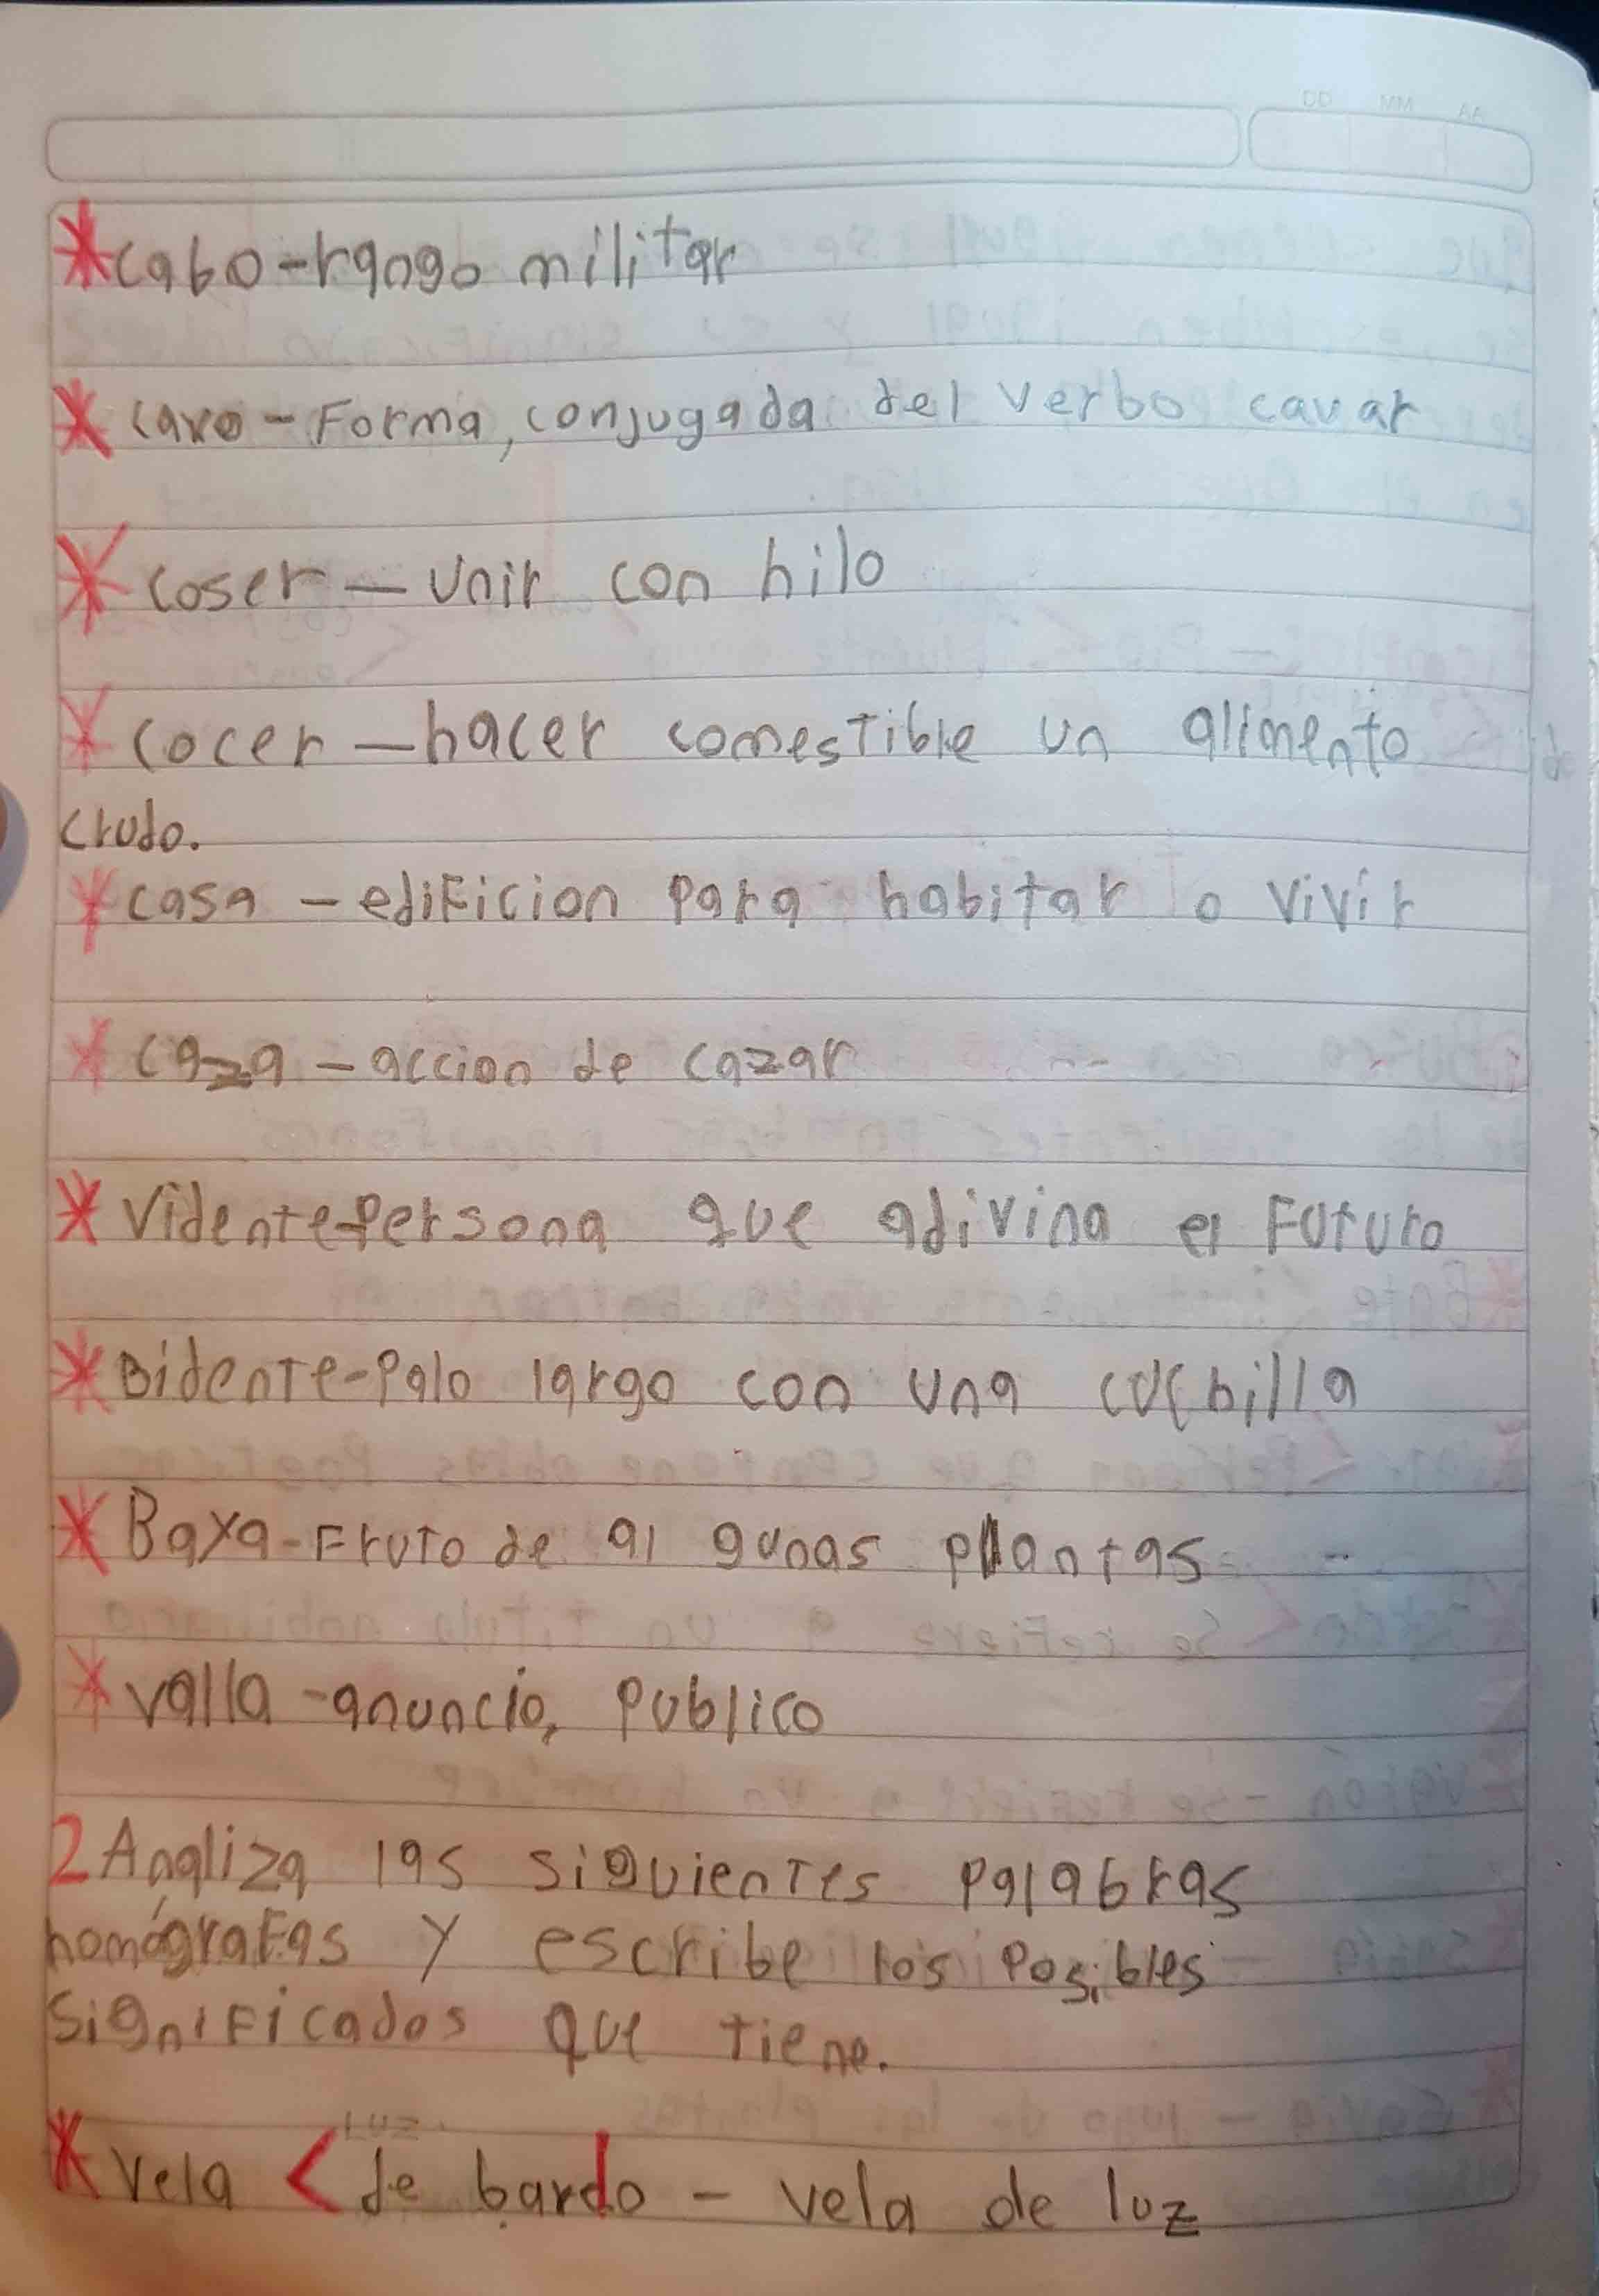 DD MM AA
*cabo-rango militar
*cavo-Forma, conjugada del verbo cavar
*coser-unir con hilo
*cocer-hacer comestible un alimento
crudo.
*casa-edificion para habitar o vivir
*caza-accion de cazar
*Vidente-Persona que adivina el Futuro
*Bidente-Palo largo con una cuchilla
*Baya-Fruto de al gunas plantas
*valla-anuncio, publico
2 Analiza las siguientes palabras
homógrafas y escribe los posibles
significados que tiene.
luz
*vela < de bardo - vela de luz